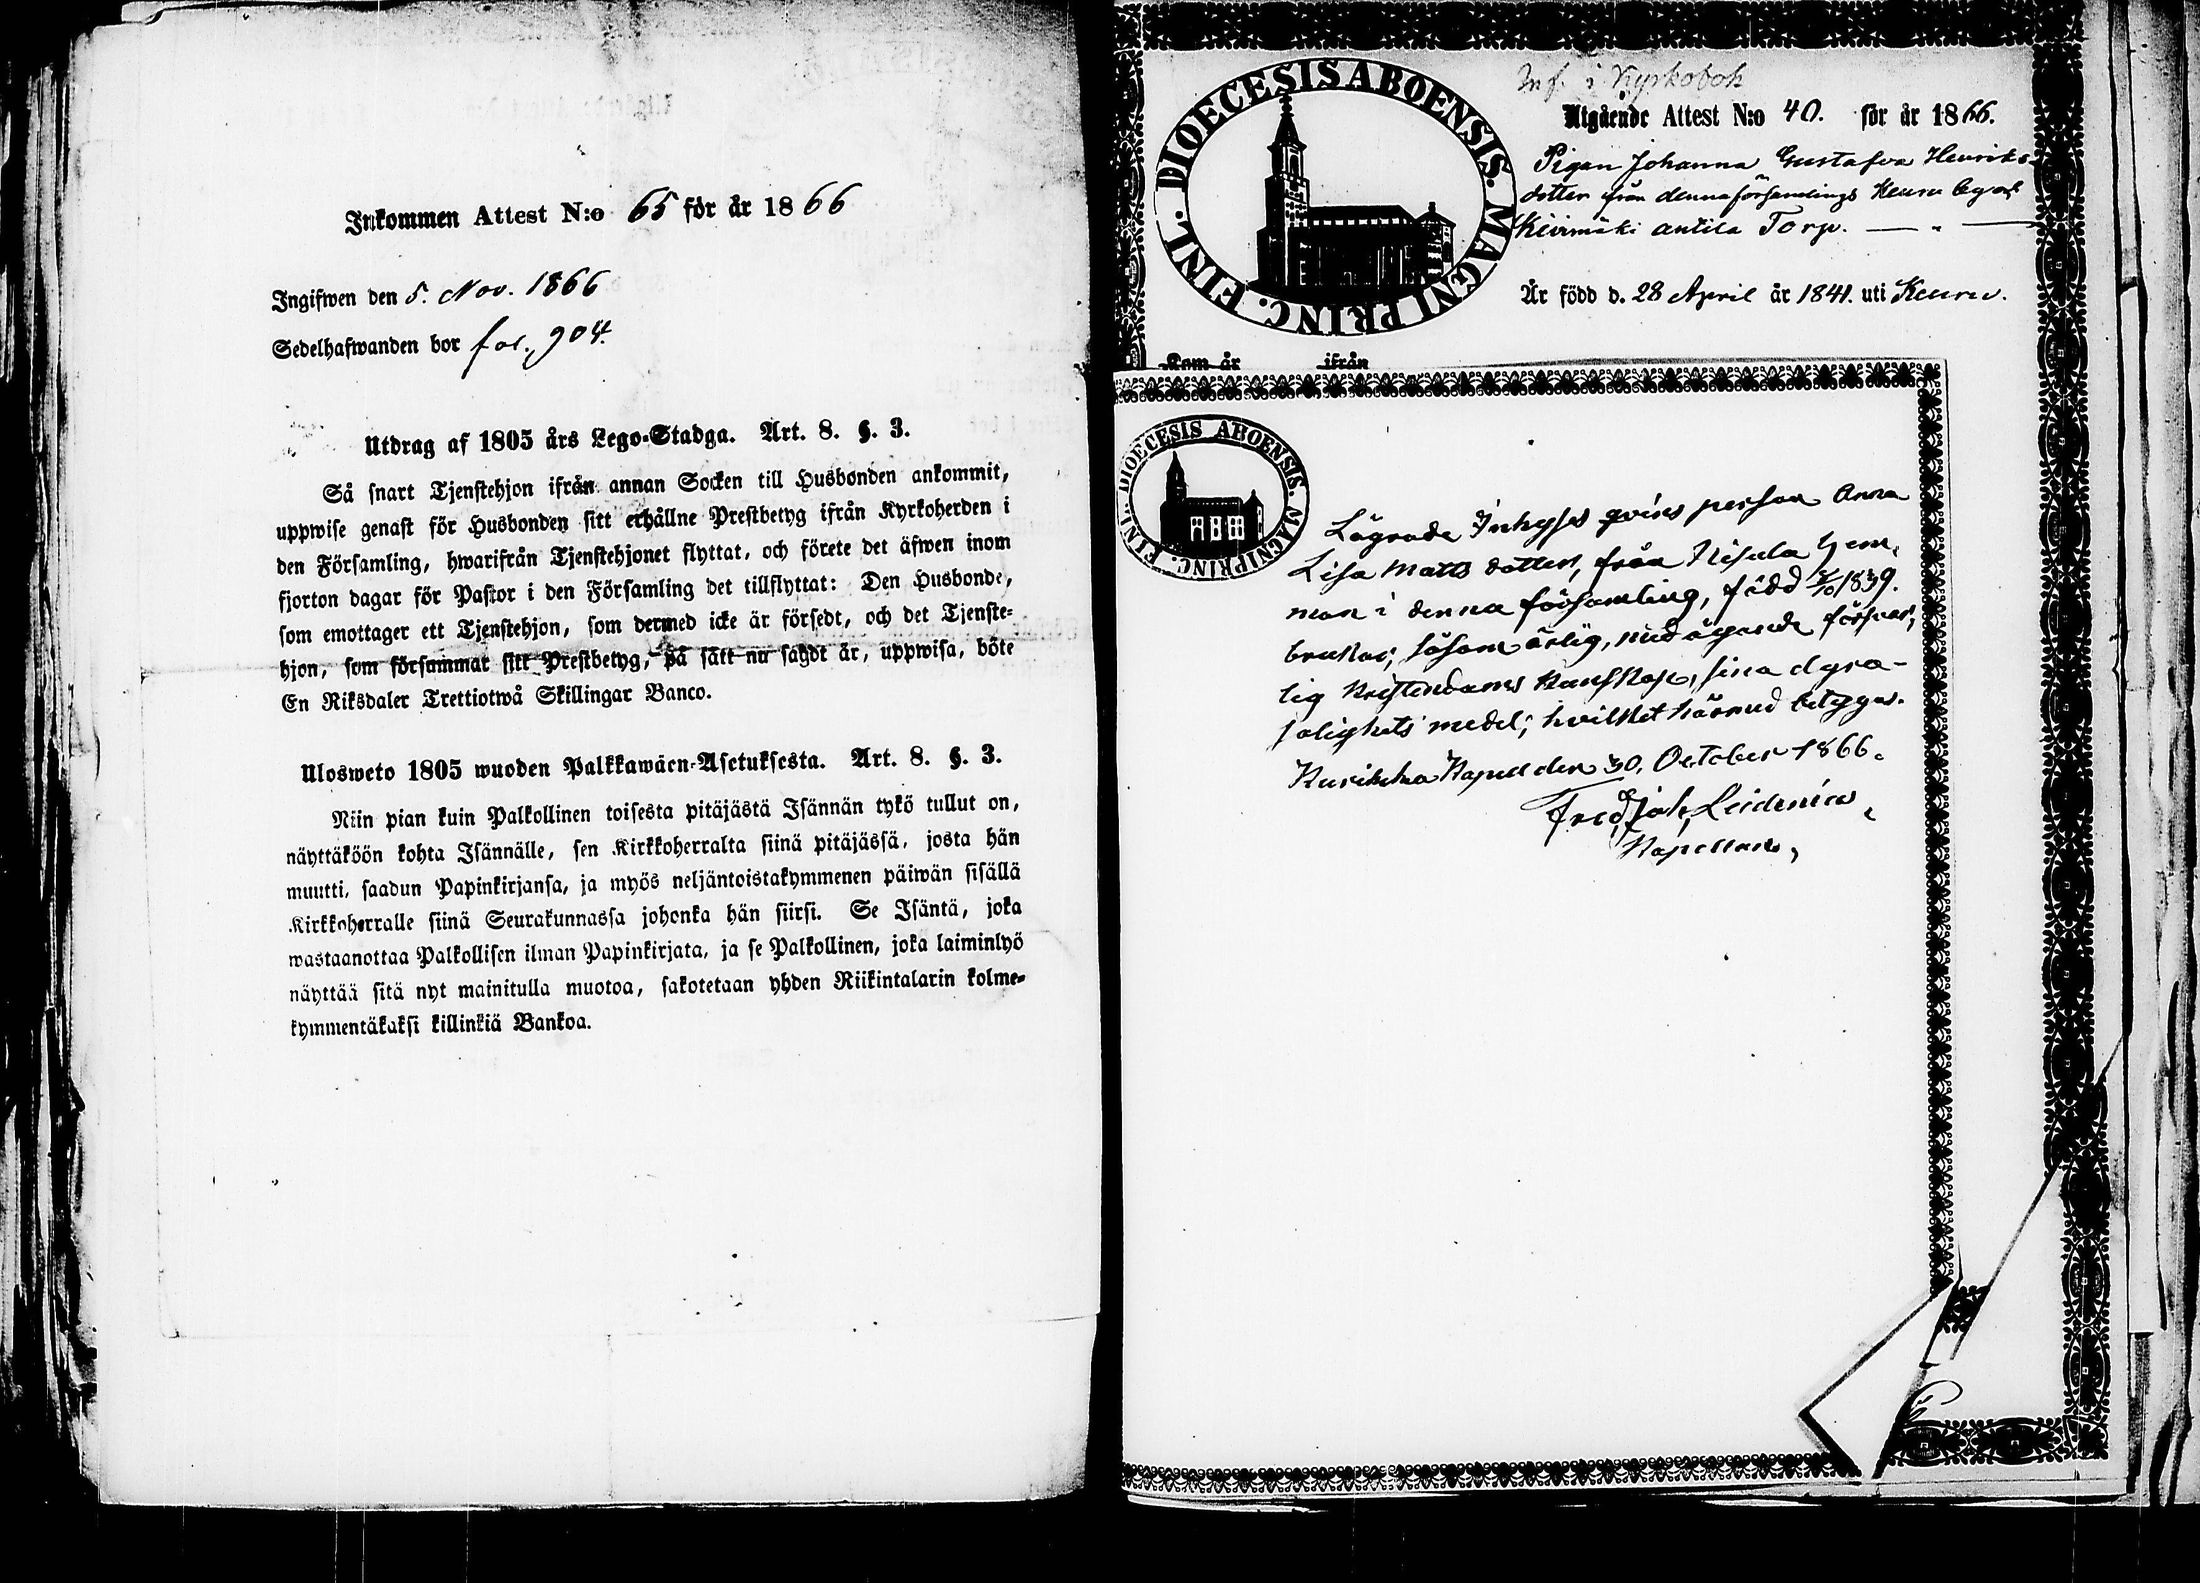 Inkommen Attest N:o 65 för år 1866
Ingifwen den 5. Nov. 1866
Sedelhafwanden bor fol. 904.
Utdrag af 1805 års Lego-Stadga. Art. 8. §. 3.
Så snart Tjenstehjon ifrån annan Socken till Husbonden ankommit,
uppwise genast för Husbonden sitt erhållne Prestbetyg ifrån Kyrkoherden i
den Församling, hwarifrån Tjenstehjonet flyttat, och förete det äfwen inom
fjorton dagar för Pastor i den Församling det tillflyttat: Den Husbonde,
som emottager ett Tjenstehjon, som dermed icke är försedt, och det Tjenste-
hjon, som försummar sitt Prestbetyg, på sätt nu sagdt är, uppwisa, böte
En Riksdaler Trettiotwå Skillingar Banco.
Ulosweto 1805 wuoden Palkkawäen-Asetuksesta. Art. 8. §. 3.
Niin pian kuin Palkollinen toisesta pitäjästä Isännän tykö tullut on,
näyttäköön kohta Isännälle, sen Kirkkoherralta siinä pitäjässä, josta hän
muutti, saadun Papinkirjansa, ja myös neljäntoistakymmenen päiwän sisällä
Kirkkoherralle siinä Seurakunnassa johonka hän siirsi. Se Isäntä, joka
wastaanottaa Palkollisen ilman Papinkirjata, ja se Palkollinen, joka laiminlyö
näyttää sitä nyt mainitulla muotoa, sakotetaan yhden Riikintalarin kolme-
kymmentäkaksi killinkiä Bankoa.
DIOECESIS ABOENSIS. MAGNI PRINC. FINL.
Inf. i Kyrkobok
Utgående Attest N:o 40. för år 1866.
Pigan Johanna Gustafva Henriks-
dotter från denna församlings Keuru
antila Torp.
Är född d. 28 April år 1841. uti Keuru.
Kom år ifrån
DIOECESIS ABOENSIS. MAGNI PRINC. FINL.
Lägrade Inhyses qvins person Anna
Lisa Matts dotter, från Nisula hem,
man i denna församling, född 1839.
brukar, såsom ärlig, med ägande försvar,
lig Kristendoms Kunskap, sina dyra
salighets medel; hvilket härmed betygas.
Kurikka Kapell den 30. October 1866.
Fred. Joh. Leidenius,
Kapellan,